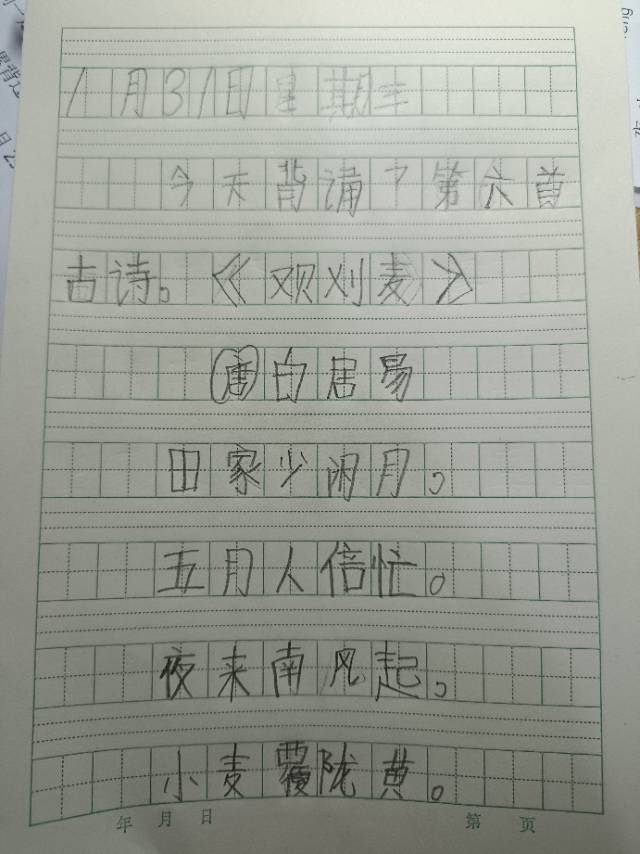 1月31日星期三
今天背诵了第六首
古诗。《观刈麦》
唐白居易
田家少闲月。
五月人倍忙。
夜来南风起。
小麦覆陇黄。
年 月 日 第 页